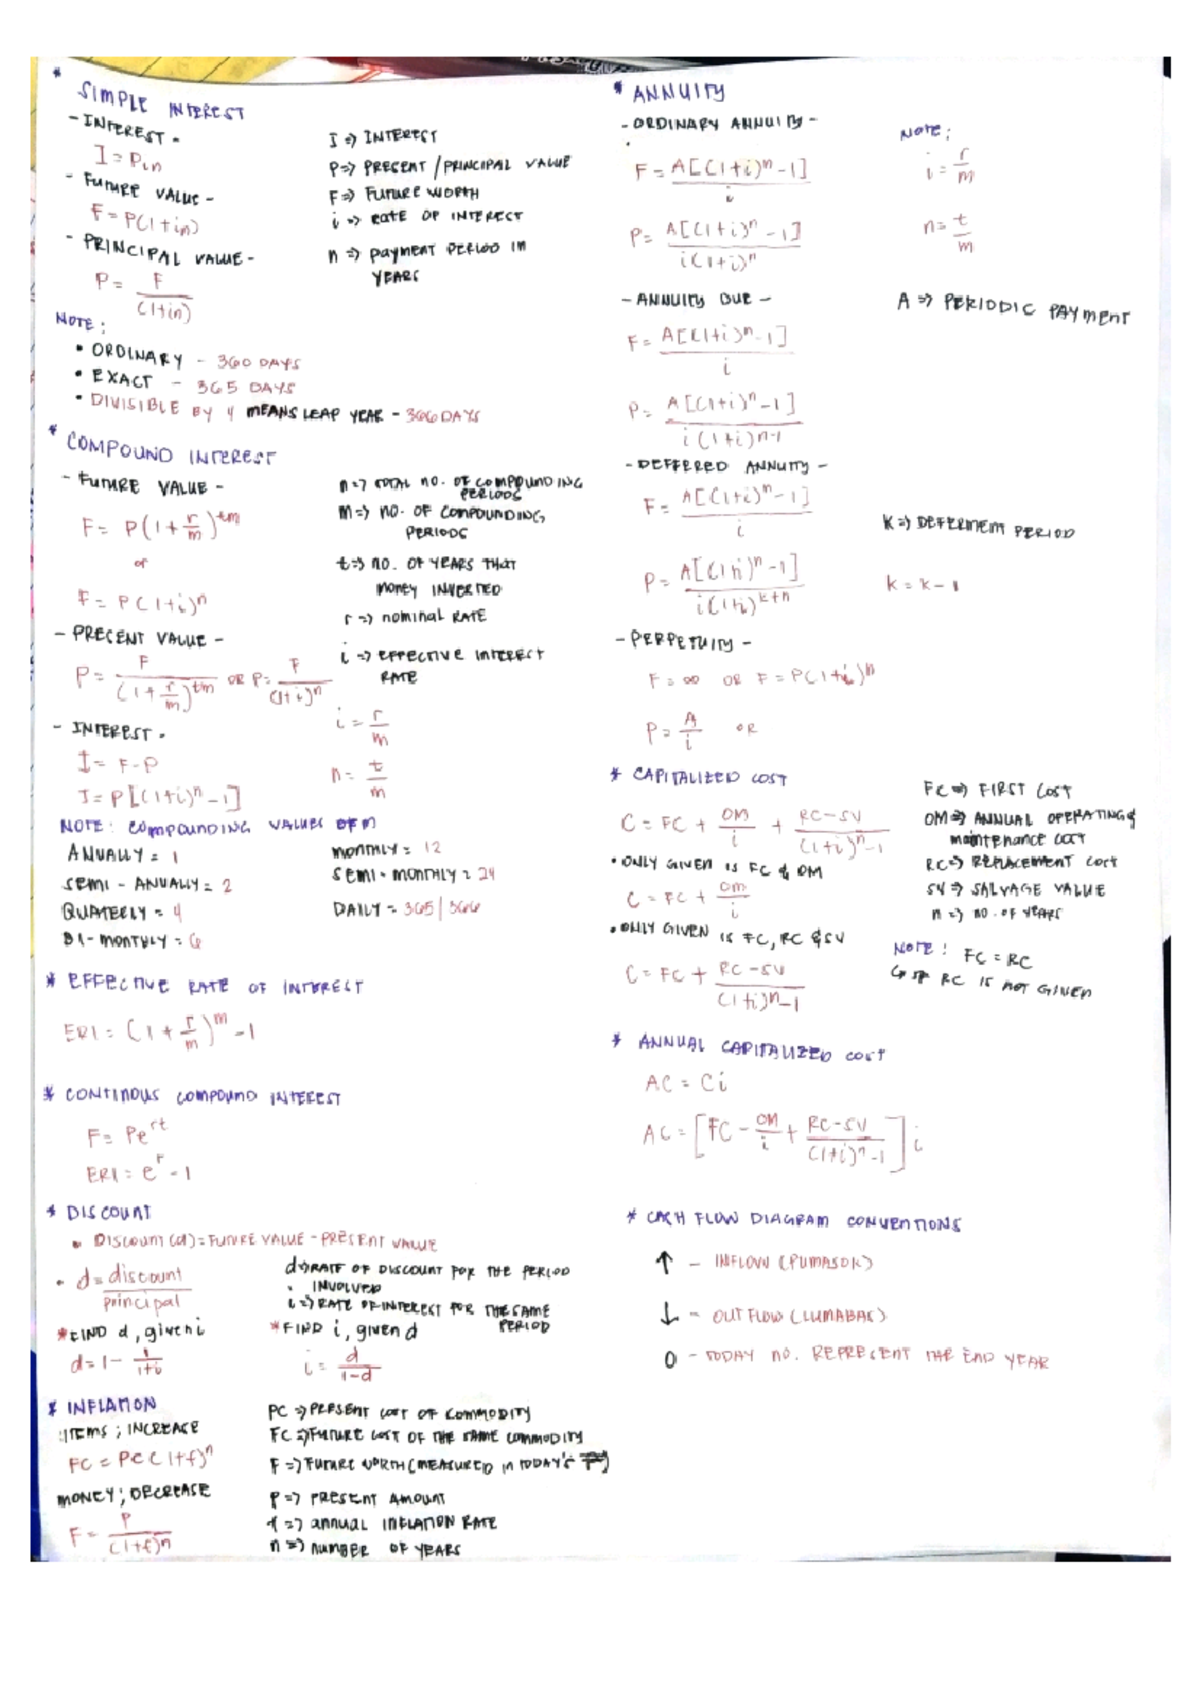 * SIMPLE INTEREST
- INTEREST -
I = Pin
- FUTURE VALUE -
F = P(1+in)
- PRINCIPAL VALUE -
P = F / (1+in)
I => INTEREST
P => PRESENT / PRINCIPAL VALUE
F => FUTURE WORTH
i => RATE OF INTEREST
n => PAYMENT PERIOD IN
YEARS
NOTE:
• ORDINARY - 360 DAYS
• EXACT - 365 DAYS
• DIVISIBLE BY 4 MEANS LEAP YEAR - 366 DAYS
* COMPOUND INTEREST
- FUTURE VALUE -
F = P(1 + r/m)^tm
or
F = P(1+i)^n
- PRECENT VALUE -
P = F / (1 + r/m)^tm OR P = F / (1+i)^n
- INTEREST -
I = F-P
I = P[(1+i)^n - 1]
n => TOTAL NO. OF COMPOUNDING
PERIODS
m => NO. OF COMPOUNDING
PERIODS
t => NO. OF YEARS THAT
MONEY INVERTED
r => nominal RATE
i => EFFECTIVE INTEREST
RATE
i = r/m
n = t/m
NOTE: COMPOUNDING VALUES OF m
ANUALLY = 1
SEMI - ANUALLY = 2
QUATERLY = 4
BI - MONTHLY = 6
MONTHLY = 12
SEMI - MONTHLY = 24
DAILY = 365 / 366
* EFFECTIVE RATE OF INTEREST
ERI = (1 + r/m)^m - 1
* CONTINOUS COMPOUND INTEREST
F = Pe^rt
ERI = e^r - 1
* DISCOUNT
• DISCOUNT (d) = FUTURE VALUE - PRESENT VALUE
• d = discount / principal
*FIND d, given i
d = 1 - 1/1+i
d => RATE OF DISCOUNT FOR THE PERIOD
INVOLVED
i => RATE OF INTEREST FOR THE SAME
PERIOD
*FIND i, given d
i = d / 1-d
* INFLATION
:ITEMS ; INCREASE
FC = PC(1+f)^n
MONEY ; DECREASE
F = P / (1+f)^n
PC => PRESENT COST OF COMMODITY
FC => FUTURE COST OF THE SAME COMMODITY
F => FUTURE WORTH (MEASURED IN TODAY'S
P => PRESENT AMOUNT
f => annual INFLATION RATE
n => NUMBER OF YEARS
* ANNUITY
- ORDINARY ANNUITY -
F = A[(1+i)^n - 1] / i
P = A[(1+i)^n - 1] / i(1+i)^n
NOTE;
i = r/m
n = t/m
- ANNUITY DUE -
F = A[(1+i)^n - 1] / i
P = A[(1+i)^n - 1] / i(1+i)^n-1
A => PERIODIC PAYMENT
- DEFFERED ANNUITY -
F = A[(1+i)^n - 1] / i
P = A[(1+i)^n - 1] / i(1+i)^k+n
K => DEFERMENT PERIOD
k = k - 1
- PERPETUITY -
F = ∞ OR F = P(1+i)^n
P = A/i OR
* CAPITALIZED COST
C = FC + OM/i + RC-SV / (1+i)^n-1
• ONLY GIVEN IS FC & OM
C = FC + OM/i
• ONLY GIVEN IS FC, RC & SV
C = FC + RC-SV / (1+i)^n-1
FC => FIRST COST
OM => ANNUAL OPERATING &
maintenance COST
RC => REPLACEMENT COST
SV => SALVAGE VALUE
n => NO. OF YEARS
NOTE: FC = RC
RC IS NOT GIVEN
* ANNUAL CAPITALIZED COST
AC = Ci
AC = [FC - OM/i + RC-SV / (1+i)^n-1] i
* CASH FLOW DIAGRAM CONVENTIONS
↑ - INFLOW (PUMASOK)
↓ - OUTFLOW (LUMABAS)
0 - TODAY NO. REPRESENT THE END YEAR